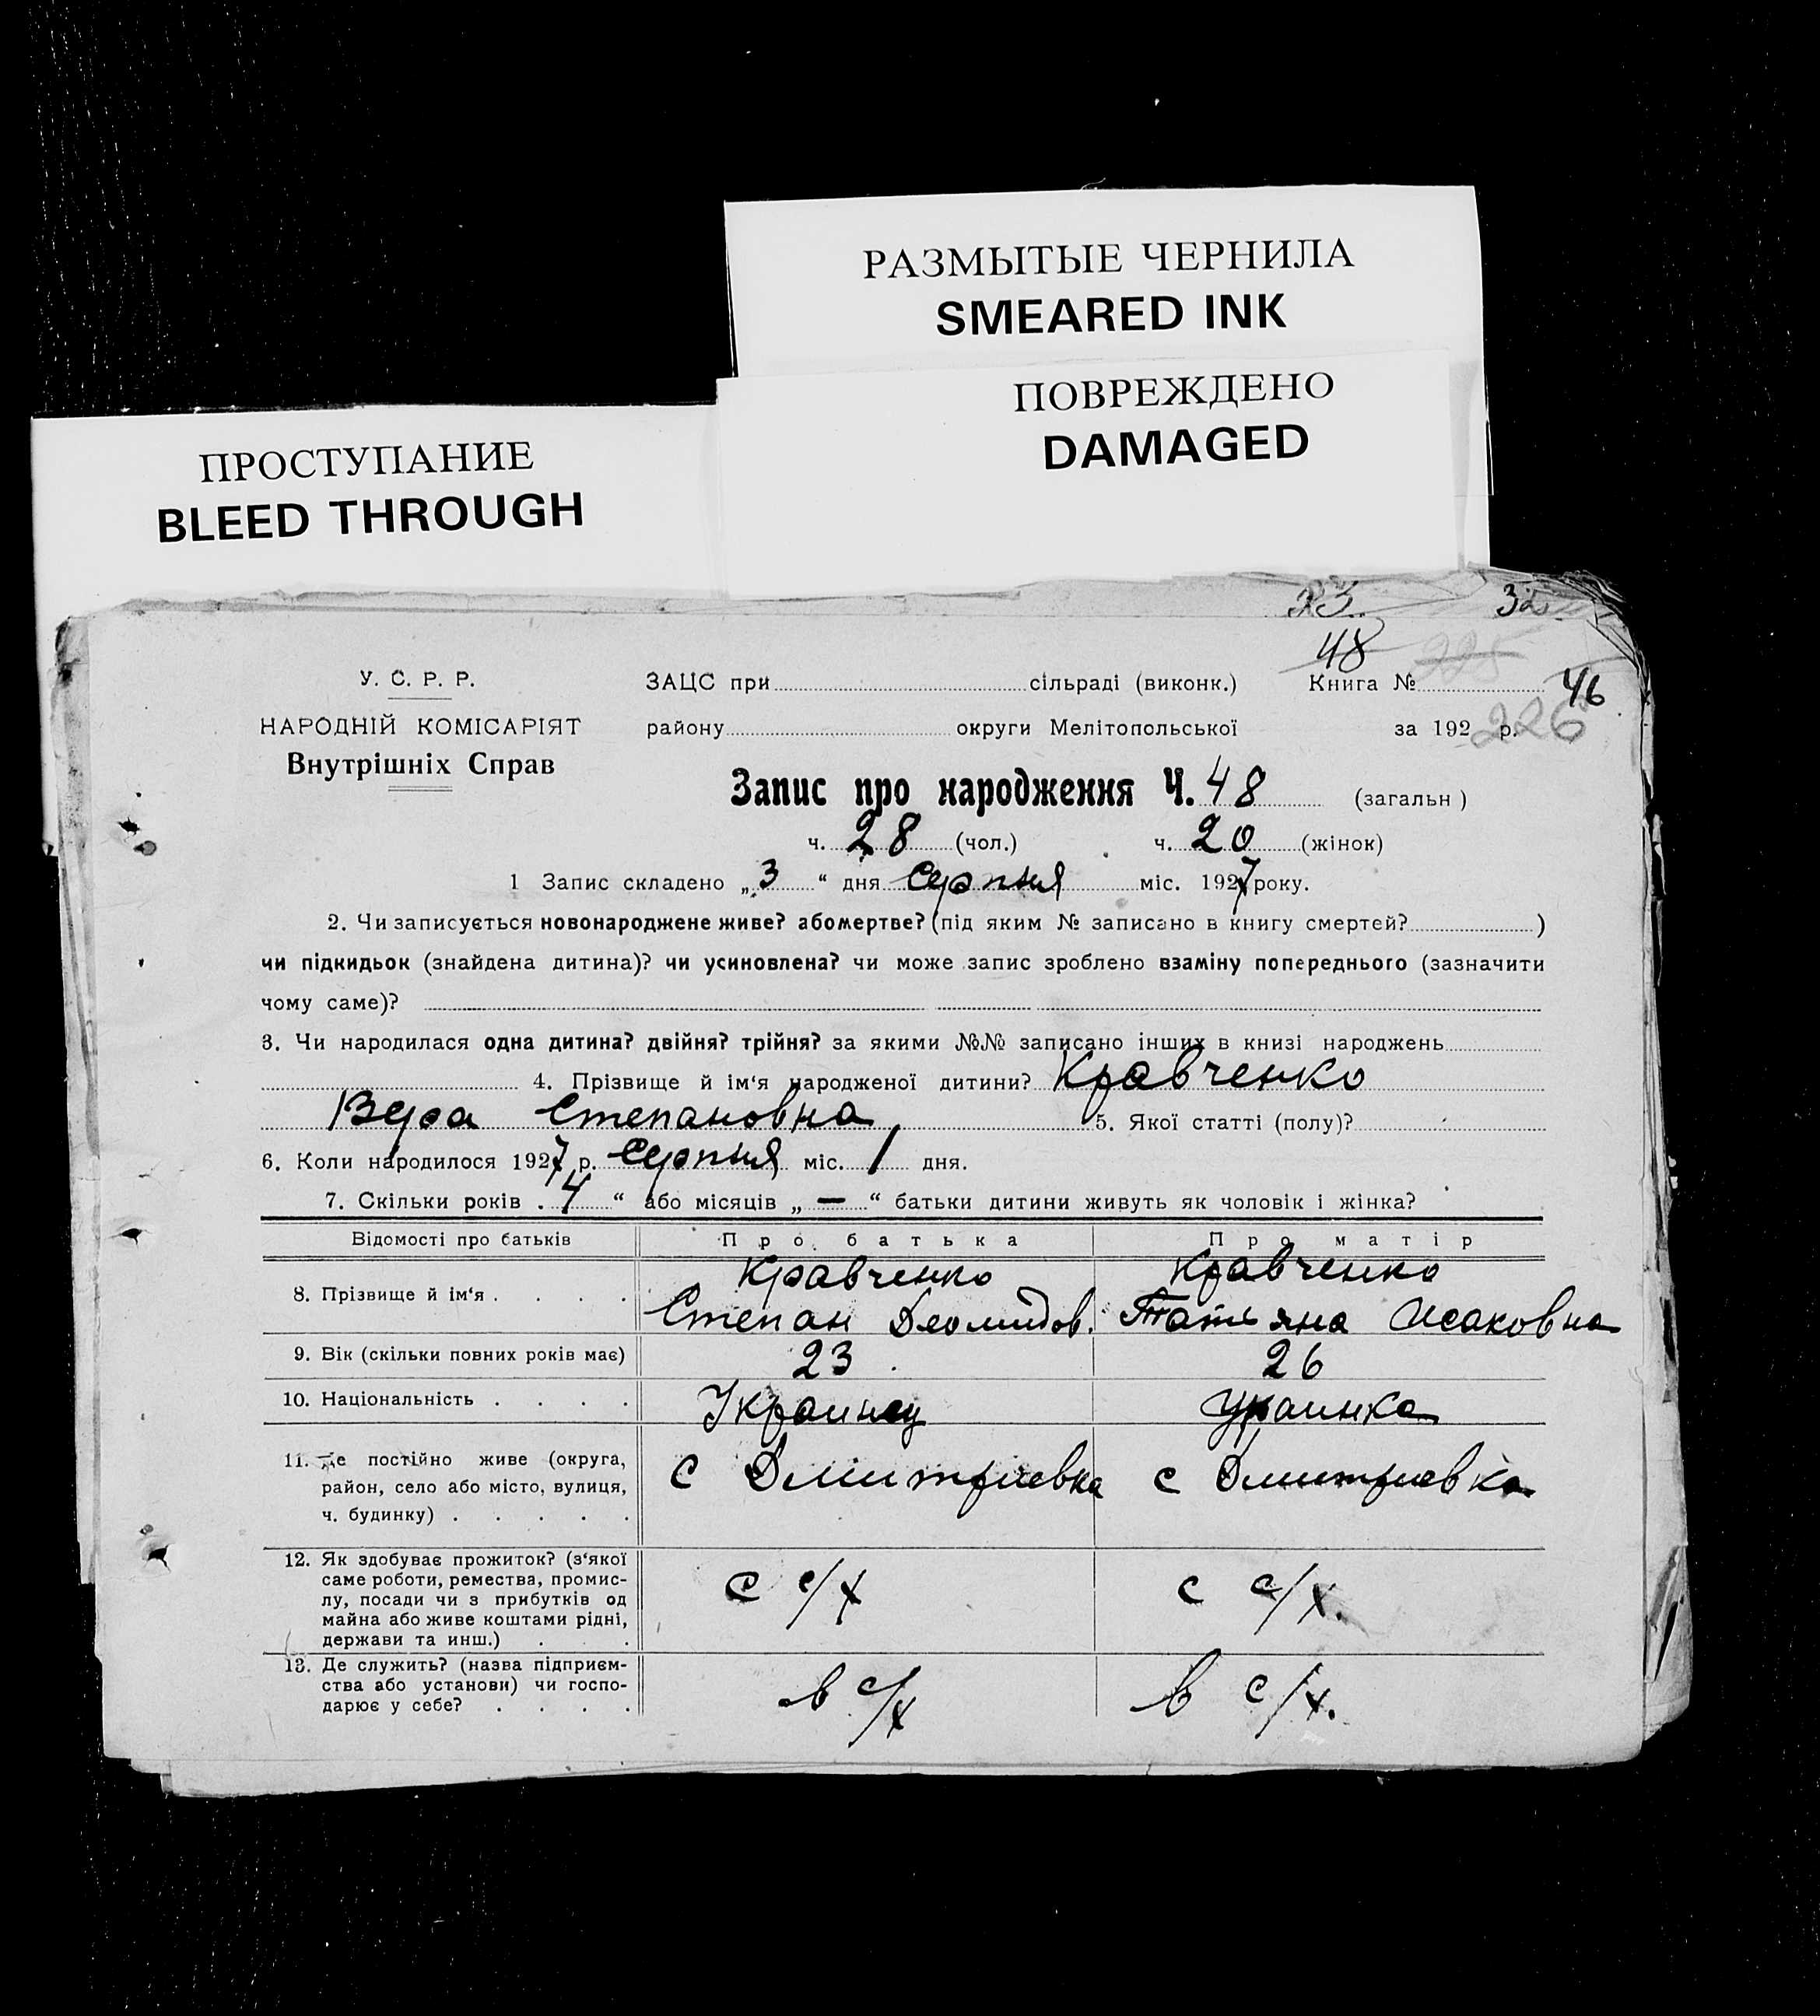 РАЗМЫТЫЕ ЧЕРНИЛА
SMEARED INK
ПОВРЕЖДЕНО
DAMAGED
ПРОСТУПАНИЕ
BLEED THROUGH
23 32
48 225
У. С. Р. Р. ЗАЦС при сільраді (виконк.) Книга № 46
НАРОДНІЙ КОМІСАРІЯТ району округи Мелітопольської за 192 р. 226
Внутрішніх Справ
Запис про народження Ч. 48 (загальн)
ч. 28 (чол.) ч. 20 (жінок)
1 Запис складено „3“ дня Серпня міс. 1927 року.
2. Чи записується новонароджене живе? або мертве? (під яким № записано в книгу смертей? )
чи підкидьок (знайдена дитина)? чи усиновлена? чи може запис зроблено взаміну попереднього (зазначити
чому саме)?
3. Чи народилася одна дитина? двійня? трійня? за якими №№ записано інших в книзі народжень
4. Прізвище й ім‘я народженої дитини? Кравченко
Вера Степановна 5. Якої статті (полу)?
6. Коли народилося 1927 р. Серпня міс. 1 дня.
7. Скільки років „4“ або місяців „—“ батьки дитини живуть як чоловік і жінка?
Відомості про батьків Про батька Про матір
8. Прізвище й ім‘я . . . . Кравченко Кравченко
Степан Деомидов. Татьяна Исаковна
9. Вік (скільки повних років має) 23 26
10. Національність . . . . Украинец Украинка
11. Де постійно живе (округа,
район, село або місто, вулиця,
ч. будинку) . . . . .
с Дмитриевка с Дмитриевка
12. Як здобуває прожиток? (з‘якої
саме роботи, ремества, промис-
лу, посади чи з прибутків од
майна або живе коштами рідні,
держави та инш.) . .
с с/х с с/х.
13. Де служить? (назва підприєм-
ства або установи) чи госпо-
дарює у себе? . . . .
в с/х в с/х.